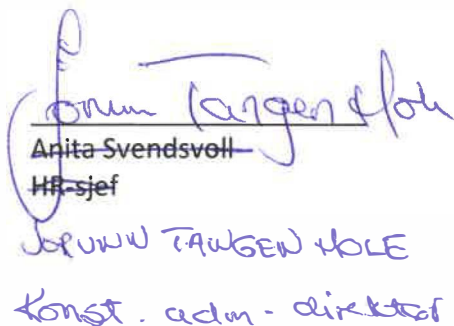 Jorunn Tangen Hole
Anita Svendsvoll
HR-sjef
JORUNN TANGEN HOLE
Konst. adm - direktør